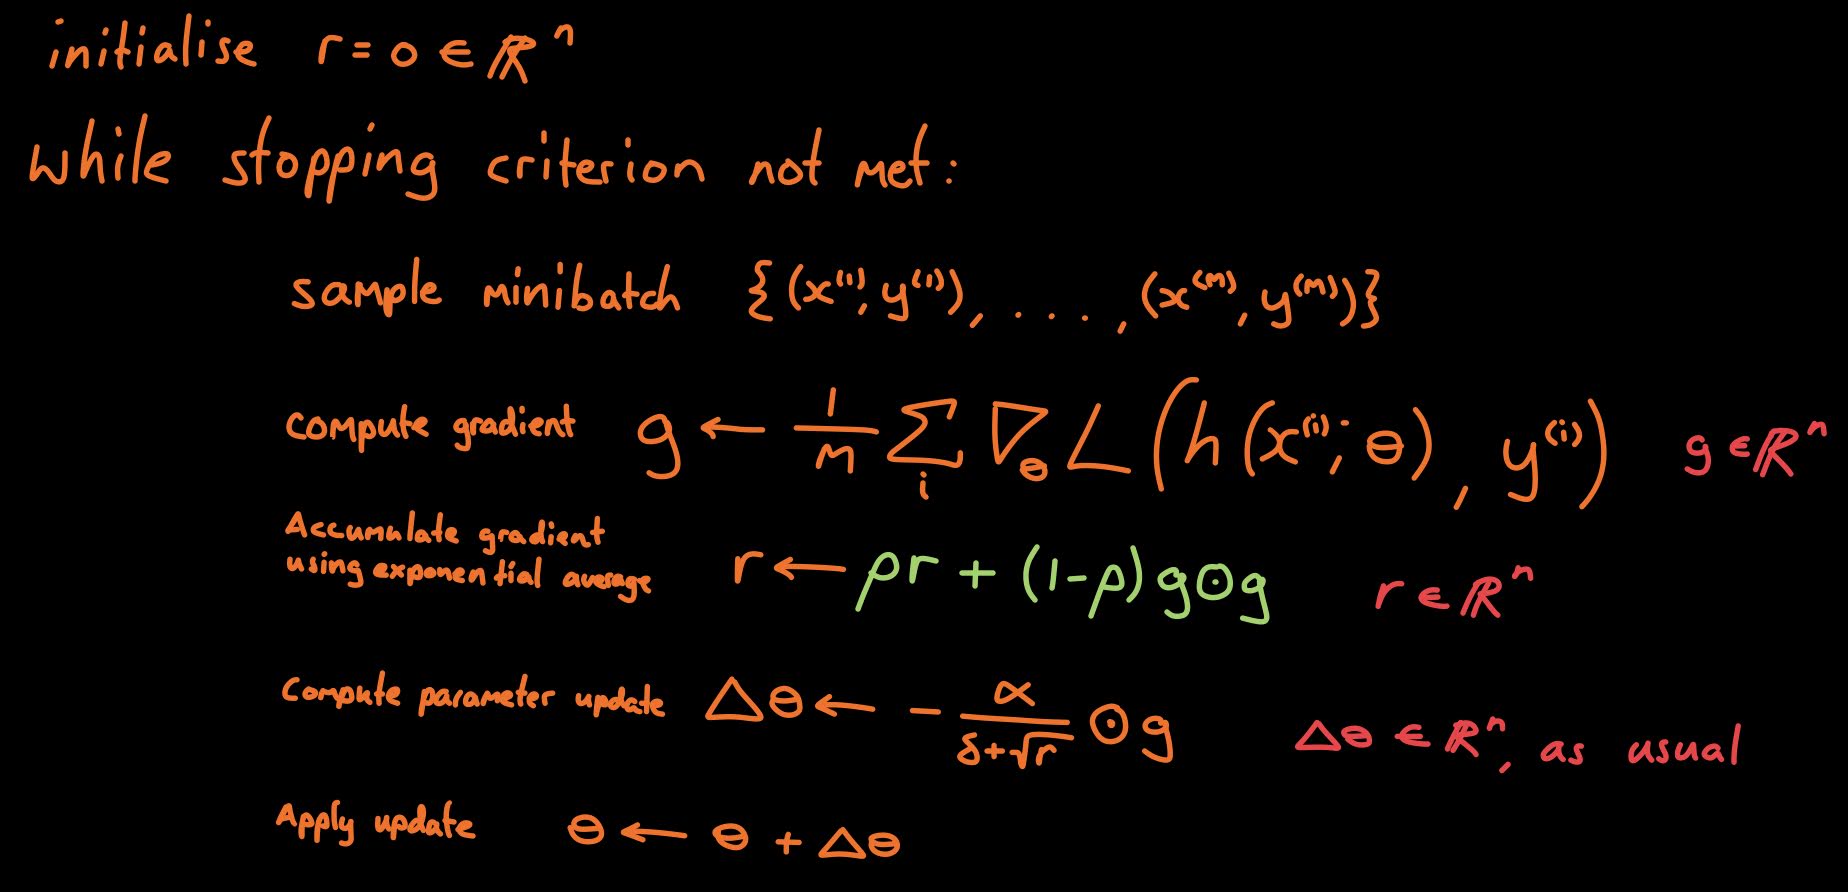 initialise r = 0 ∈ ℝⁿ
while stopping criterion not met:
sample minibatch {(x⁽¹⁾, y⁽¹⁾), . . . , (x⁽ᵐ⁾, y⁽ᵐ⁾)}
compute gradient g ← 1/m Σᵢ ∇_θ L(h(x⁽ⁱ⁾; θ), y⁽ⁱ⁾) g ∈ ℝⁿ
Accumulate gradient
using exponential average r ← ρr + (1-ρ) g⊙g r ∈ ℝⁿ
Compute parameter update Δθ ← - α/(δ+√r) ⊙ g Δθ ∈ ℝⁿ, as usual
Apply update θ ← θ + Δθ